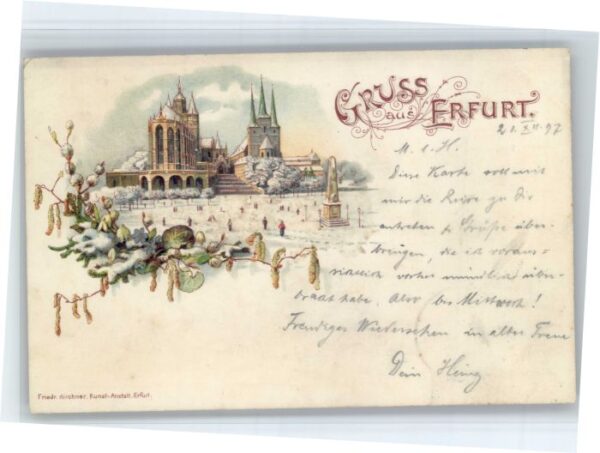 GRUSS
aus ERFURT.
21. XII. 97
M. l. H.
Diese Karte soll mit
mir die Reise zu Dir
antreten & Grüße über-
bringen, die ich voraus-
sichtlich vorher mündlich über-
bracht habe. Also bis Mittwoch!
Freudiges Wiedersehen in alter Treue
Dein Heinz
Friedr. Kirchner, Kunst-Anstalt, Erfurt.